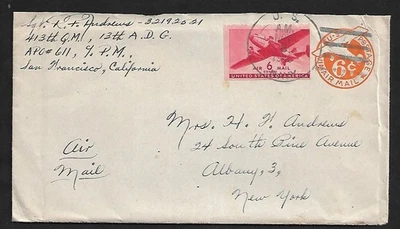 Sgt. R. F. Andrews - 32192521
413th Q.M., 13th A.D.G.
APO #611, % P.M.,
San Francisco, California
U.S.
6
AIR MAIL
UNITED STATES OF AMERICA
6¢
AIR MAIL
Mrs. H. F. Andrews
24 South Pine Avenue
Albany, 3,
New York
Air
Mail